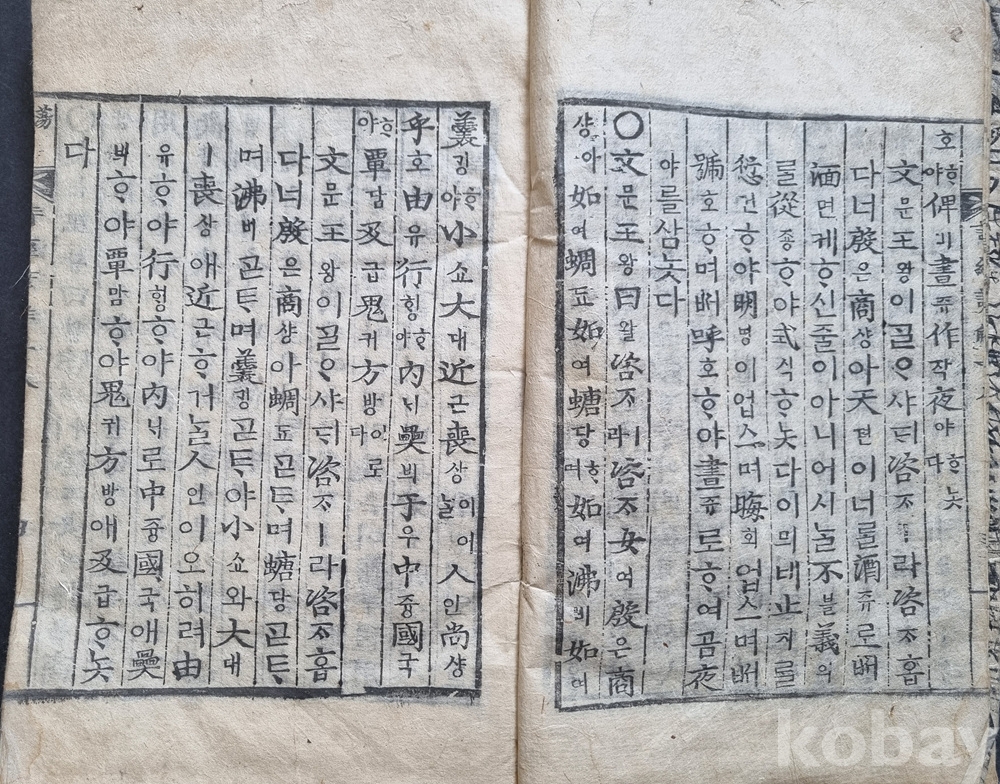 호ᄒᆞ야俾비晝쥬作작夜야ᄒᆞ놋다
文문王왕이ᄀᆞᆯᄋᆞ샤ᄃᆡ咨ᄌᆞㅣ라咨ᄌᆞ홉
다너殷은商샹아天텬이너ᄅᆞᆯ酒쥬로ᄡᅥ
湎면케ᄒᆞ신줄이아니어시ᄂᆞᆯ不블義의
ᄅᆞᆯ從죵ᄒᆞ야式식ᄒᆞ놋다이믜네止지ᄅᆞᆯ
愆건ᄒᆞ야明명이업스며晦회업스며ᄡᅥ
號호ᄒᆞ며ᄡᅥ呼호ᄒᆞ야晝쥬로ᄒᆞ여곰夜
야를삼놋다
○文문王왕曰왈咨ᄌᆞㅣ라咨ᄌᆞ女여殷은商
샹아如여蜩됴如여螗당ᄒᆞ며如여沸비如여
羹ᄀᆡᆼᄒᆞ야小쇼大대近근喪상이어ᄂᆞᆯ人인尙샹
乎호由유行ᄒᆡᆼᄒᆞ야內ᄂᆡ奰븨于우中즁國국
ᄒᆞ야覃담及급鬼귀方방이로다
文문王왕이ᄀᆞᆯᄋᆞ샤ᄃᆡ咨ᄌᆞㅣ라咨ᄌᆞ홉
다너殷은商샹아蜩됴ᄀᆞᆮᄐᆞ며螗당ᄀᆞᆮᄐᆞ
며沸비ᄀᆞᆮᄐᆞ며羹ᄀᆡᆼᄀᆞᆮᄐᆞ야小쇼와大대
ㅣ喪상애近근ᄒᆞ거ᄂᆞᆯ人인이오히려由
유ᄒᆞ야行ᄒᆡᆼᄒᆞ야內ᄂᆡ로中즁國국애奰
븨ᄒᆞ야覃담ᄒᆞ야鬼귀方방애及급ᄒᆞ놋
다
蕩
kobay